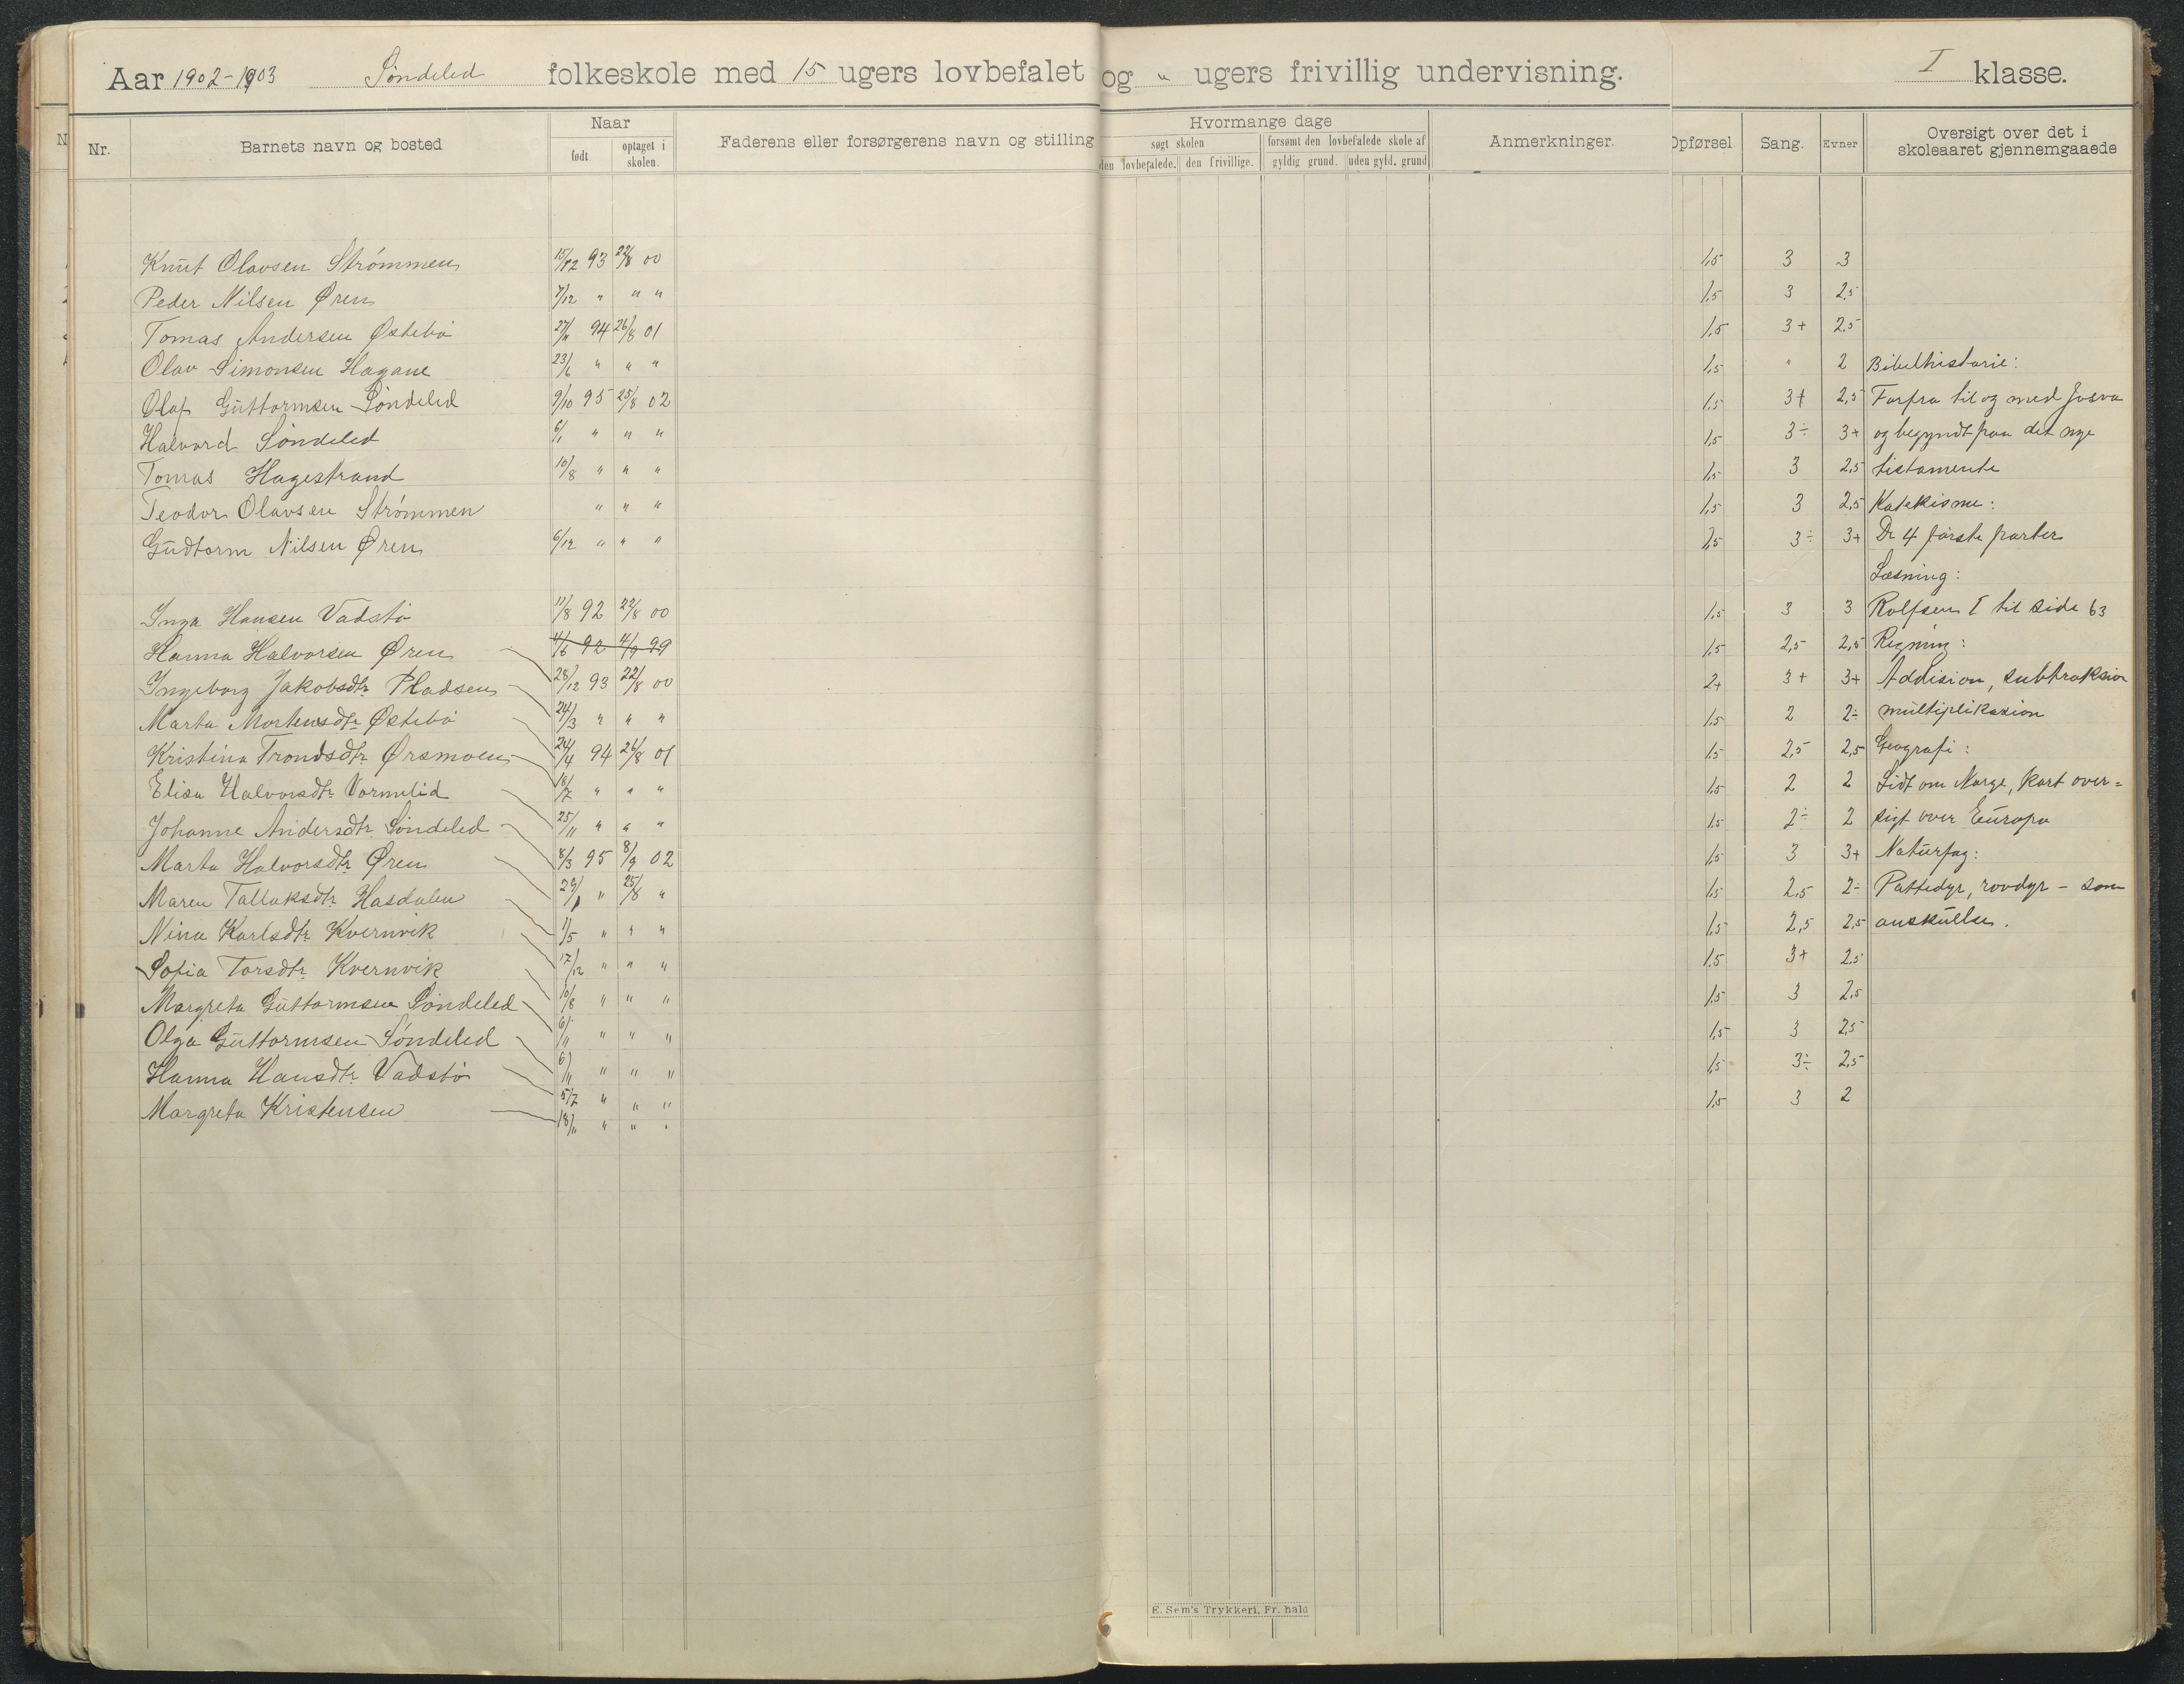 Aar 1902-1903 Søndeled folkeskole med 15 ugers lovbefalet og " ugers frivillig undervisning. I klasse.
Nr. Barnets navn og bosted Naar født optaget i skolen. Faderens eller forsørgerens navn og stilling Hvormange dage søgt skolen den lovbefalede. den frivillige. forsømt den lovbefalede skole af gyldig grund. uden gyld. grund Anmerkninger. Opførsel. Sang. Evner Oversigt over det i skoleaaret gjennemgaaede
Knut Olavsen Strømmen 15/12 93 22/8 00 1,5 3 3
Peder Nilsen Øren 7/12 " " " 1,5 3 2,5
Tomas Andersen Østebø 27/11 94 26/8 01 1,5 3+ 2,5
Olav Simonsen Hagane 23/6 " " " 1,5 " 2 Bibelhistorie:
Olaf Guttormsen Søndeled 9/10 95 25/8 02 1,5 3+ 2,5 Forfra til og med Josva
Halvord Søndeled 6/1 " " " 1,5 3÷ 3+ og begyndt paa det nye
Tomas Hagestrand 10/8 " " " 1,5 3 2,5 testamente
Teodor Olavsen Strømmen " " " 1,5 3 2,5 Katekisme:
Gudtorm Nilsen Øren 6/12 " " " 1,5 3÷ 3+ De 4 første parter
Læsning:
Inga Hansen Vadstø 11/8 92 22/8 00 1,5 3 3 Rolfsen I til side 63
Hanna Halvorsen Øren 4/6 92 4/9 99 1,5 2,5 2,5 Regning:
Ingeborg Jakobsdtr Pladsen 28/12 93 22/8 00 2+ 3+ 3+ Addision, subtraksion
Marta Mortensdtr Østebø 24/3 " " " 1,5 2 2÷ multiplikasion
Kristina Trondsdtr Ørsmoen 24/4 94 26/8 01 1,5 2,5 2,5 Geografi:
Elisa Halvorsdtr Vormelid 18/7 " " " 1,5 2 2 Lidt om Norge, kart over=
Johanne Andersdtr Søndeled 25/11 " " " 1,5 2÷ 2 sigt over Europa
Marta Halvorsdtr Øren 8/3 95 8/9 02 1,5 3 3+ Naturfag:
Maren Tallaksdtr Hasdalen 29/1 " 25/8 " 1,5 2,5 2÷ Pattedyr, rovdyr - som
Nina Karlsdtr Kvernvik 1/5 " " " 1,5 2,5 2,5 anskuelse.
Sofia Torsdtr Kvernvik 17/12 " " " 1,5 3+ 2,5
Margreta Guttormsen Søndeled 10/8 " " " 1,5 3 2,5
Olga Guttormsen Søndeled 6/11 " " " 1,5 3 2,5
Hanna Hansdtr Vadstø 6/11 " " " 1,5 3÷ 2,5
Margreta Kristensen 5/7 " " " 1,5 3 2
18/11 " " "
E. Sem's Trykkeri, Fr. hald
6